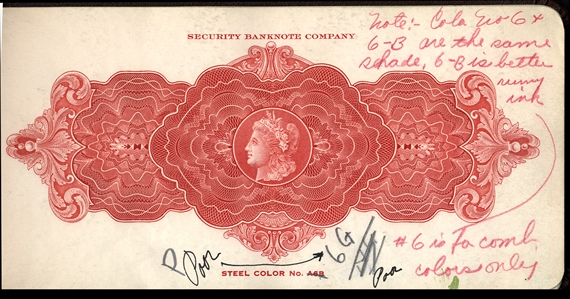 SECURITY BANKNOTE COMPANY
Note:- Cola No 6 &
6-B are the same
shade, 6-B is better
runny
ink
Poor
6
Poor
#6 is Fa comb
colors only
STEEL COLOR No. A6B